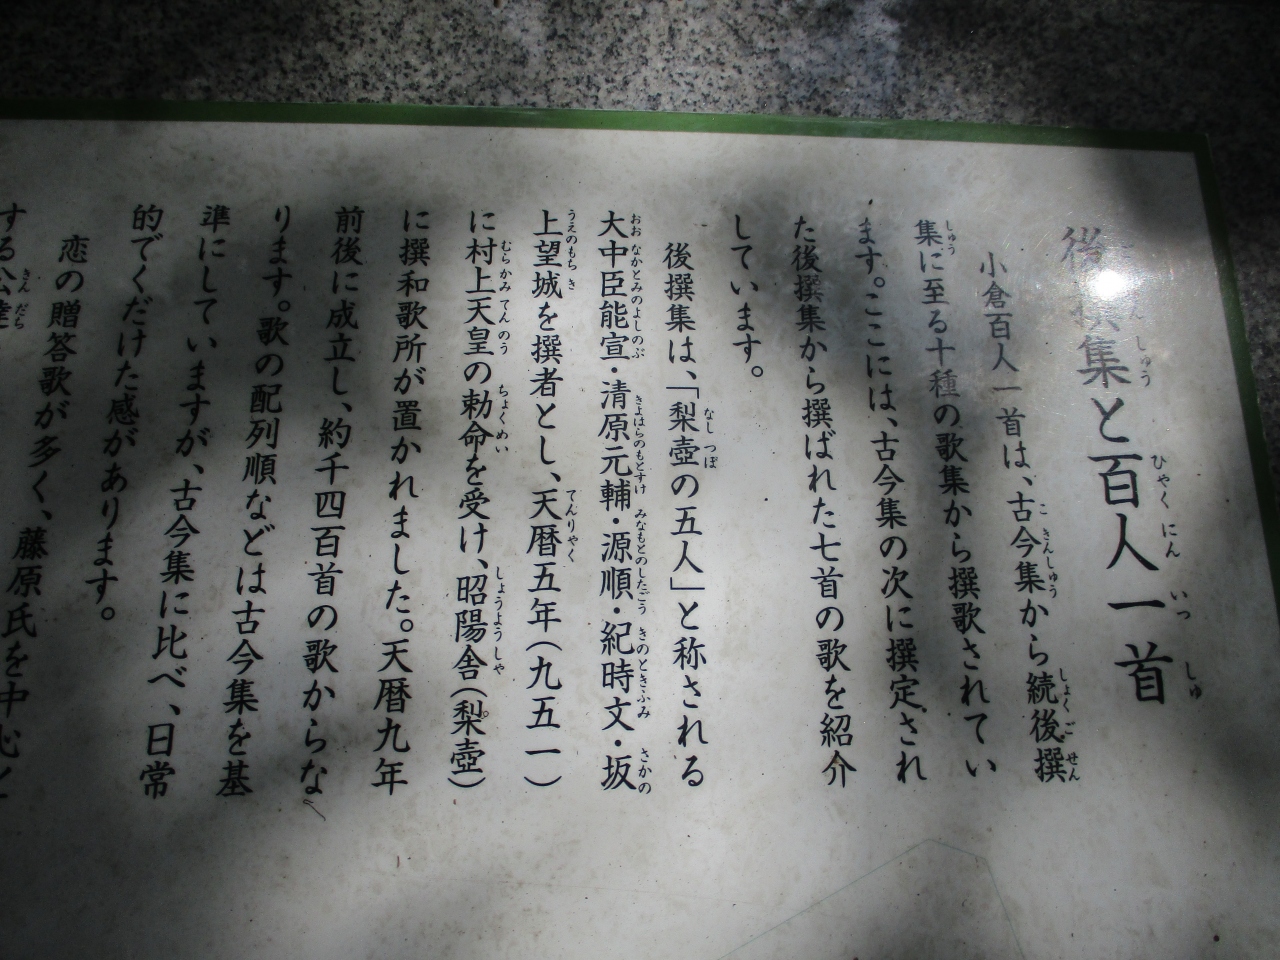 後撰集と百人一首
小倉百人一首は、古今集から続後撰
集に至る十種の歌集から撰歌されてい
ます。ここには、古今集の次に撰定され
た後撰集から撰ばれた七首の歌を紹介
しています。
後撰集は、「梨壺の五人」と称される
大中臣能宣・清原元輔・源順・紀時文・坂
上望城を撰者とし、天暦五年(九五一)
に村上天皇の勅命を受け、昭陽舎(梨壺)
に撰和歌所が置かれました。天暦九年
前後に成立し、約千四百首の歌からな
ります。歌の配列順などは古今集を基
準にしていますが、古今集に比べ、日常
的でくだけた感があります。
恋の贈答歌が多く、藤原氏を中心と
する公達